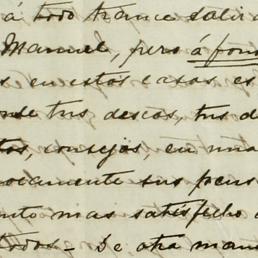 á todo trance salir
Manuel, pero á fon
s en estos casos es
de tus deseos, tus d
tos, consejos, en una
ocamente sus pens
nto mas satisfecho
todos - De otra man